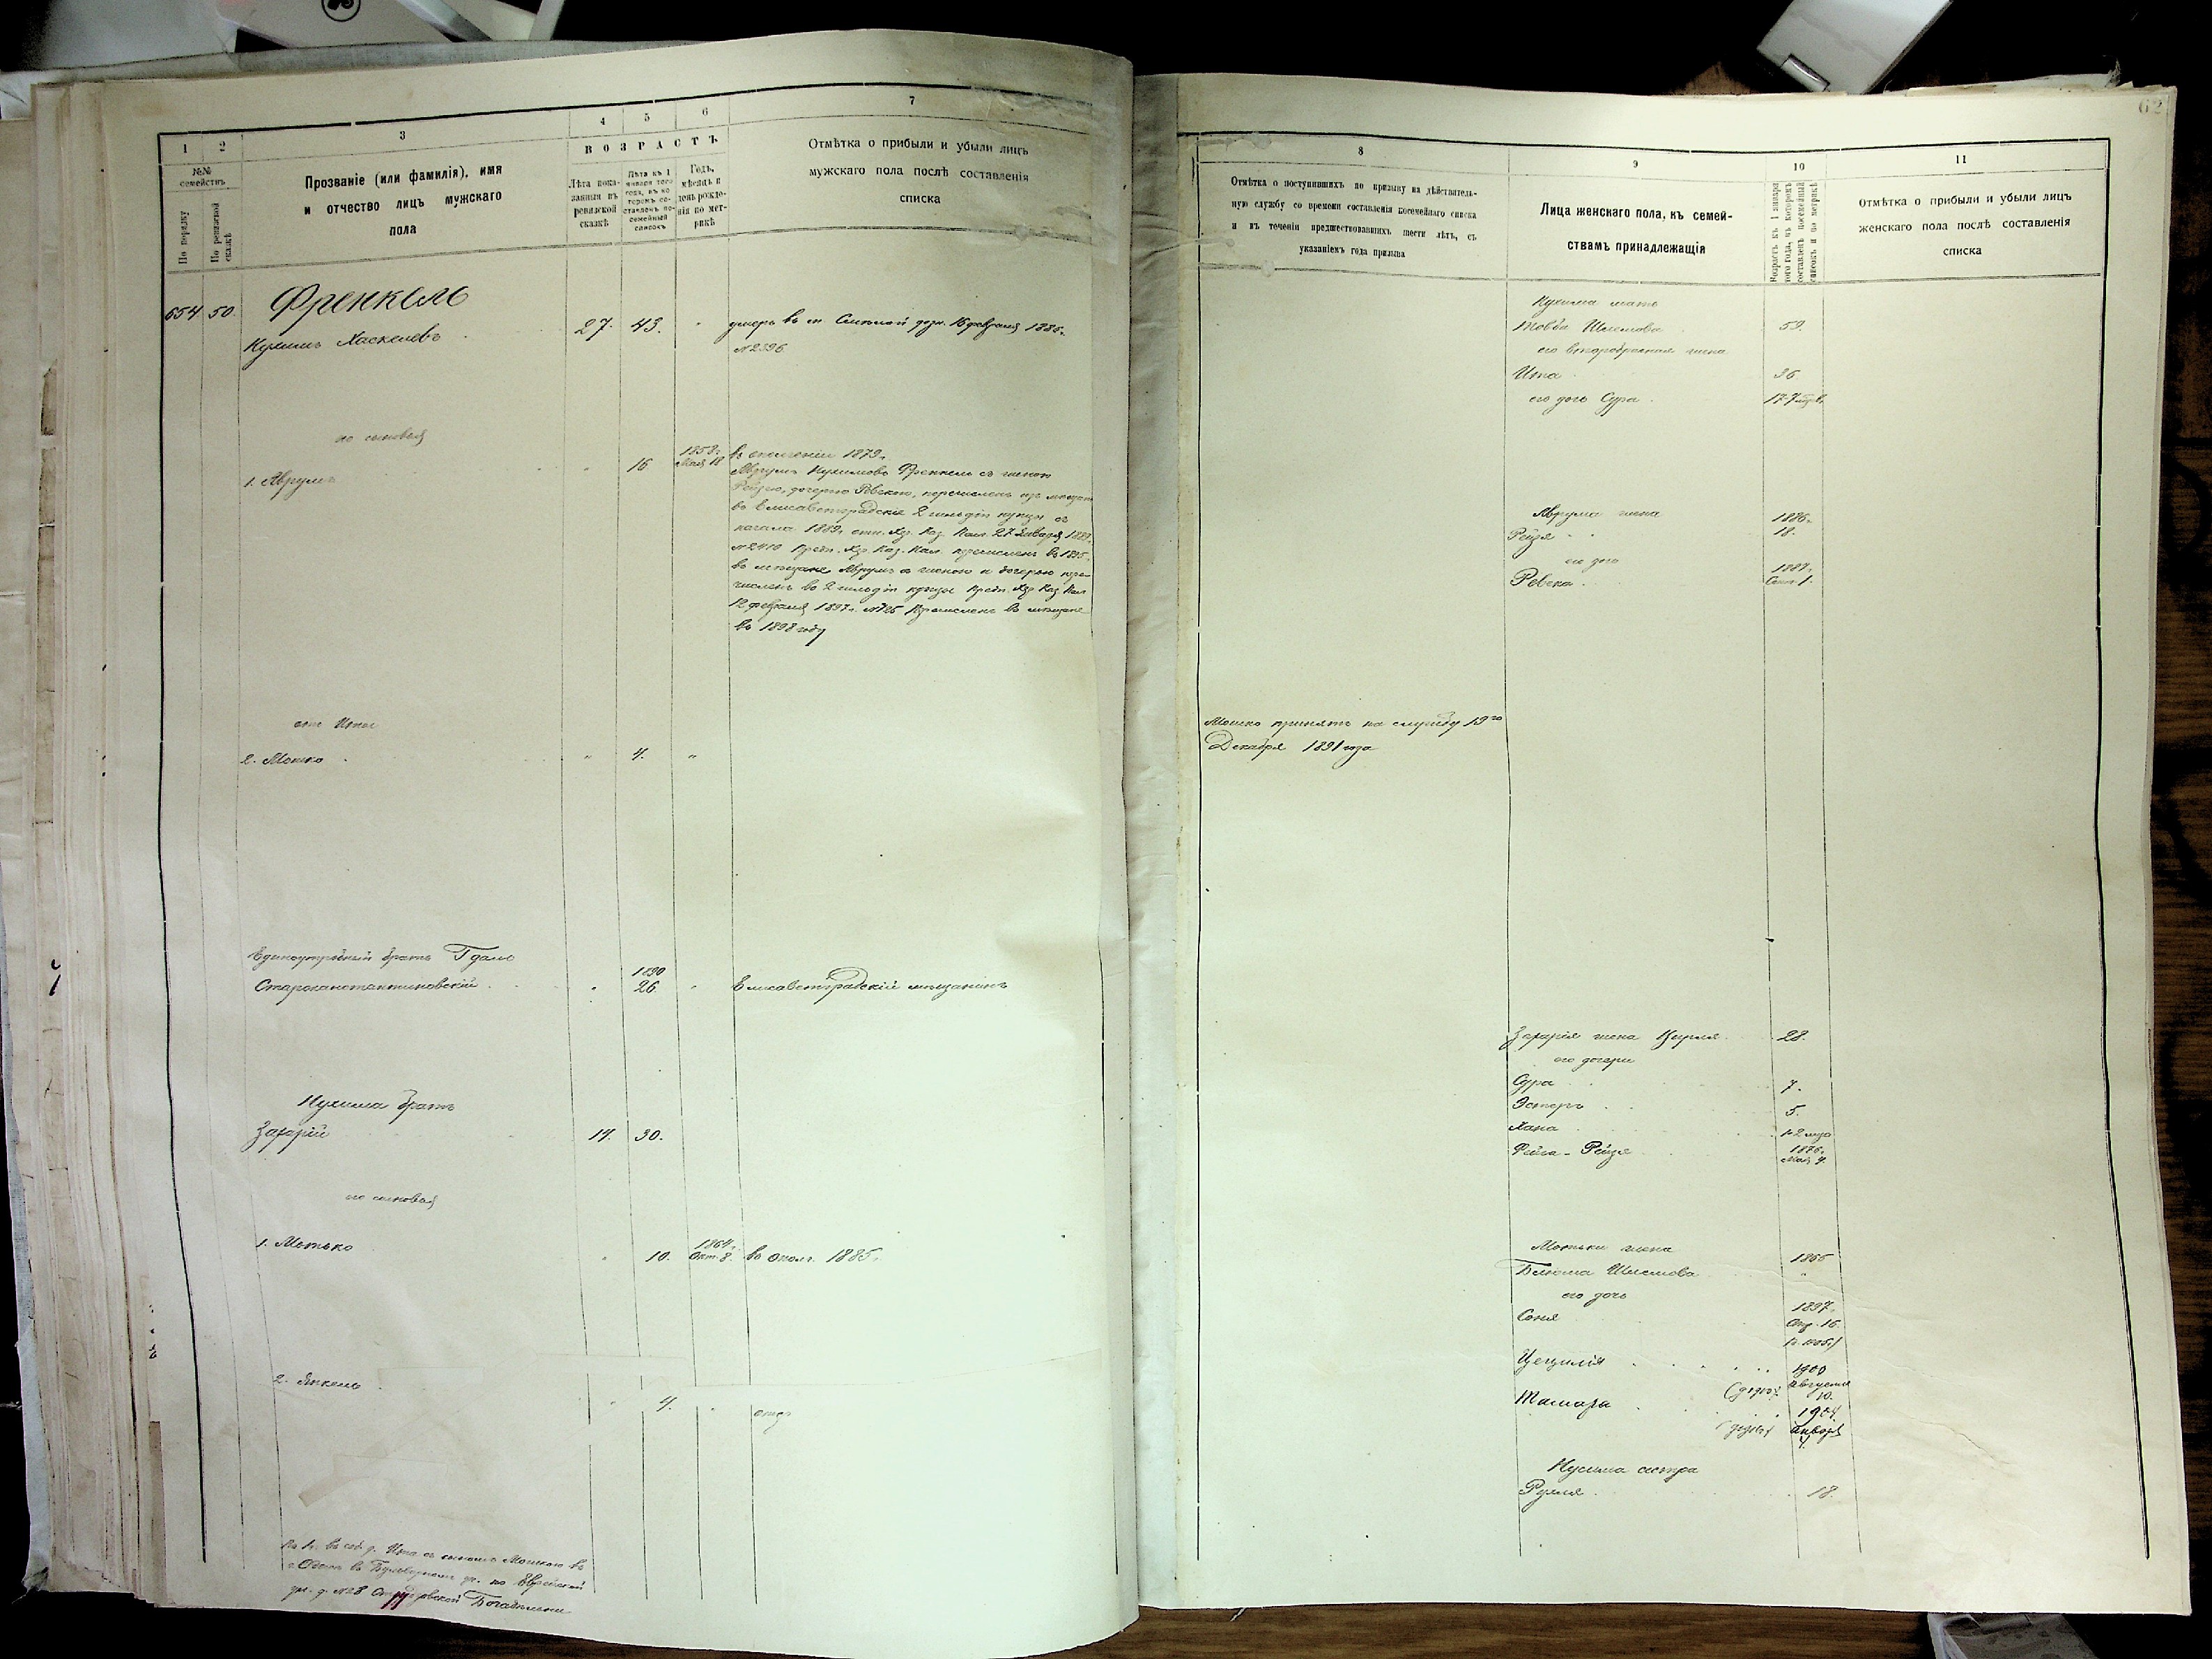 1
2
3
4
5
6
7
№№ семействъ
По порядку
По ревизской сказкѣ
Прозваніе (или фамилія), имя
и отчество лицъ мужскаго
пола
ВОЗРАСТЪ
Лѣта пока-
занныя въ
ревизской
сказкѣ
Лѣта къ 1
января того
года, въ ко
торомъ со-
ставленъ по-
семейный
списокъ
Годъ,
мѣсяцъ и
день рожде-
нія по мет-
рикѣ
Отмѣтка о прибыли и убыли лицъ
мужскаго пола послѣ составленія
списка
654 50. Френкель
Нухимъ Хаскелевъ 27. 43. умеръ въ м. Смѣлой 16 февраля
№ 2396
его сыновья
1. Аврумъ 16 1858 г. Мая 18 въ ополченіи 1879 г.
Аврумъ Нухимовъ Френкель съ женою
Рейзею, дочерью Ревекою, перечисленъ изъ мѣщанъ
въ Елисаветградскіе 2 гильдіи купцы съ
начала 1889 г. отн. Хер. Каз. Пал. 27 Января 1889 г.
№ 2410 Хер. Каз. Пал. перечисленъ въ 1895
въ мѣщане Аврумъ съ женою и дочерью пере-
численъ во 2 гильдіи купцы Хер. Каз. Пал.
12 февраля 1897 г. № 725 Перечисленъ въ мѣщане
въ 1898 году
отъ Иты
2. Мошко 4.
Единоутробный братъ Гдаль
Староконстантиновскій 1890 26. Елисаветградскій мѣщанинъ
Нухима братъ
Захарій 14. 30.
его сыновья
1. Мотько 10. 1864 г. Окт. 8. въ ополч. 1885 г.
2. Янкель 4.
Ита съ сыномъ Мошкою въ
г. Одессѣ въ Бульварномъ уч. по Еврейской
ул. д. № 28
62
8
9
10
11
Отмѣтка о поступившихъ по призыву на дѣйствитель-
ную службу со времени составленія посемейнаго списка
и въ теченіи предшествовавшихъ шести лѣтъ, съ
указаніемъ года призыва
Лица женскаго пола, къ семей-
ствамъ принадлежащія
Возрастъ къ 1 января
того года, въ которомъ
составленъ посемейный
списокъ и по метрикѣ
Отмѣтка о прибыли и убыли лицъ
женскаго пола послѣ составленія
списка
Нухима мать
Товба Шлемова 59.
его второбрачная жена
Ита 36
его дочь Сура
Аврума жена 1886 г.
Рейзя 18.
его дочь 1887 г.
Ревека Сент. 1.
Мошко принятъ на службу 19го
Декабря 1891 года
Захарія жена Цирля 28.
его дочери
Сура 7.
Эстеръ 5.
Хана
Фейга-Рейзя 1876 г. Мая 4.
Мотьки жена 1866
Блюма Шлемова
его дочь
Соня 1897 г. Апр. 16.
Цецилія 1900 августа 10.
Тамара 1904 января 4.
Нухима сестра
Рухля 18.